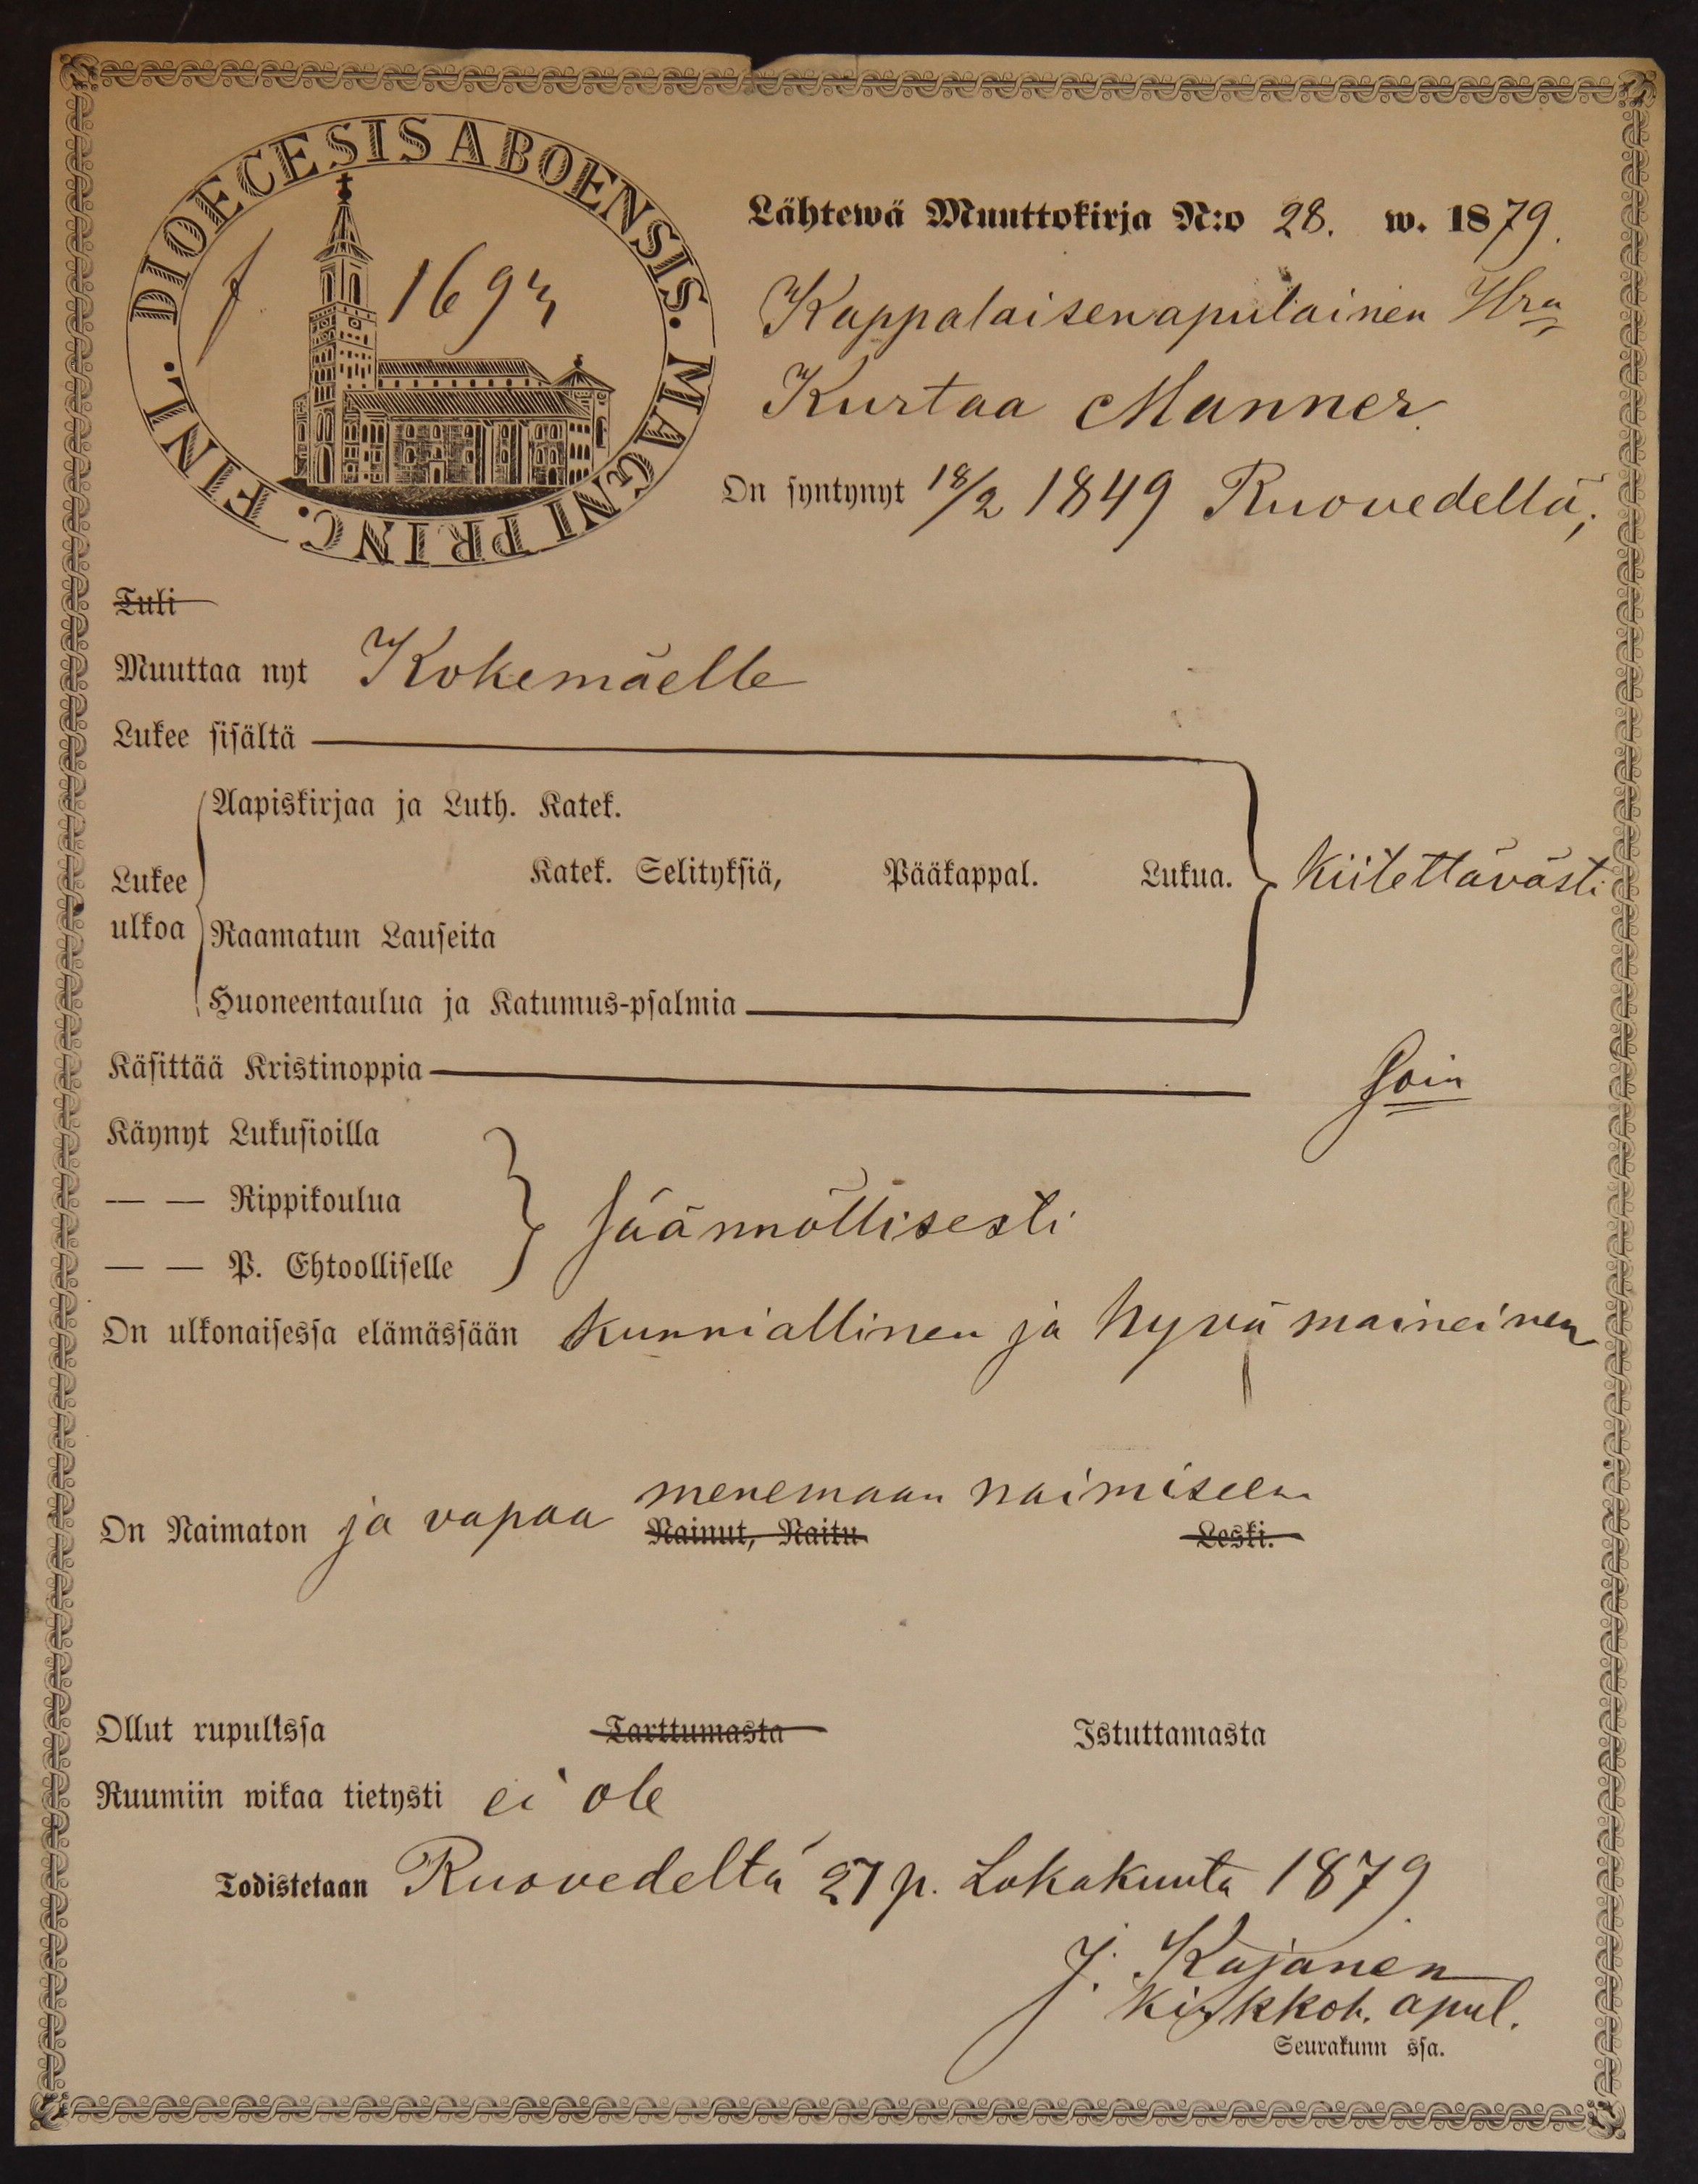 DIOECESIS ABOENSIS. MAGNI PRINC. FINL.
1693
Lähtewä Muuttokirja N:o 28. w. 1879.
Kappalaisenapulainen Hra
Kustaa Manner.
On syntynyt 18/2 1849 Ruovedellä,
Tuli
Muuttaa nyt Kokemäelle
Lukee sisältä
Aapiskirjaa ja Luth. Katek.
Lukee ulkoa Katek. Selityksiä, Pääkappal. Lukua. kiitettävästi
Raamatun Lauseita
Huoneentaulua ja Katumus-psalmia
Käsittää Kristinoppia soin
Käynyt Lukusioilla
— — Rippikoulua säännöllisesti
— — P. Ehtoolliselle
On ulkonaisessa elämässään kunniallinen ja hyvä maineinen
On Naimaton ja vapaa menemään naimiseen
Nainut, Naitu Leski.
Ollut rupulissa Tarttumasta Istuttamasta
Ruumiin wikaa tietysti ei ole
Todistetaan Ruovedeltä 27 p. Lokakuuta 1879.
J. Kajanen
kirkkoh. apul.
Seurakunn ssa.